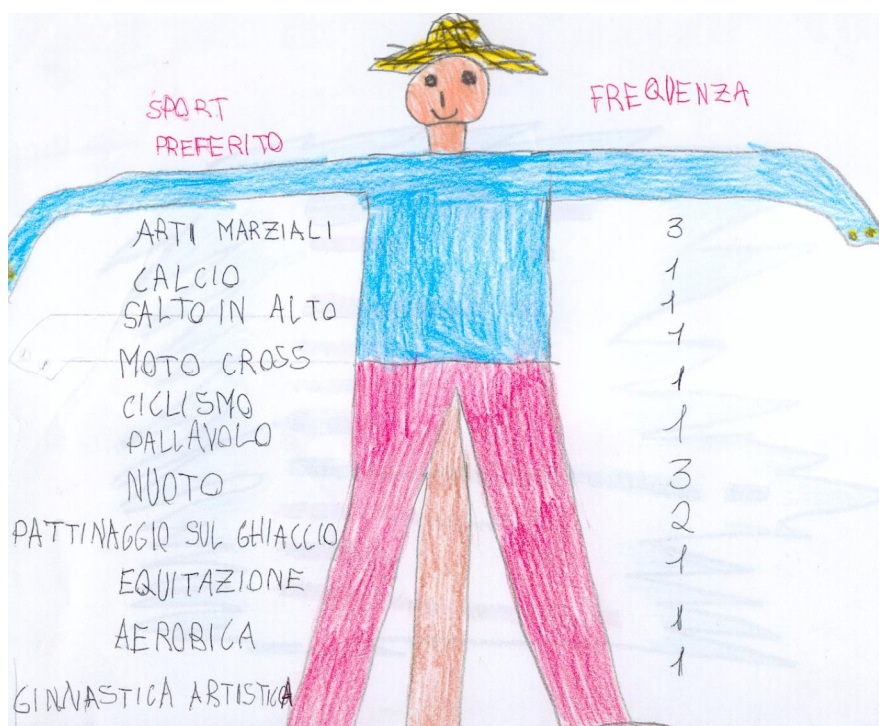 SPORT PREFERITO FREQUENZA
ARTI MARZIALI 3
CALCIO 1
SALTO IN ALTO 1
MOTO CROSS 1
CICLISMO 1
PALLAVOLO 1
NUOTO 3
PATTINAGGIO SUL GHIACCIO 2
EQUITAZIONE 1
AEROBICA 1
GINNASTICA ARTISTICA 1